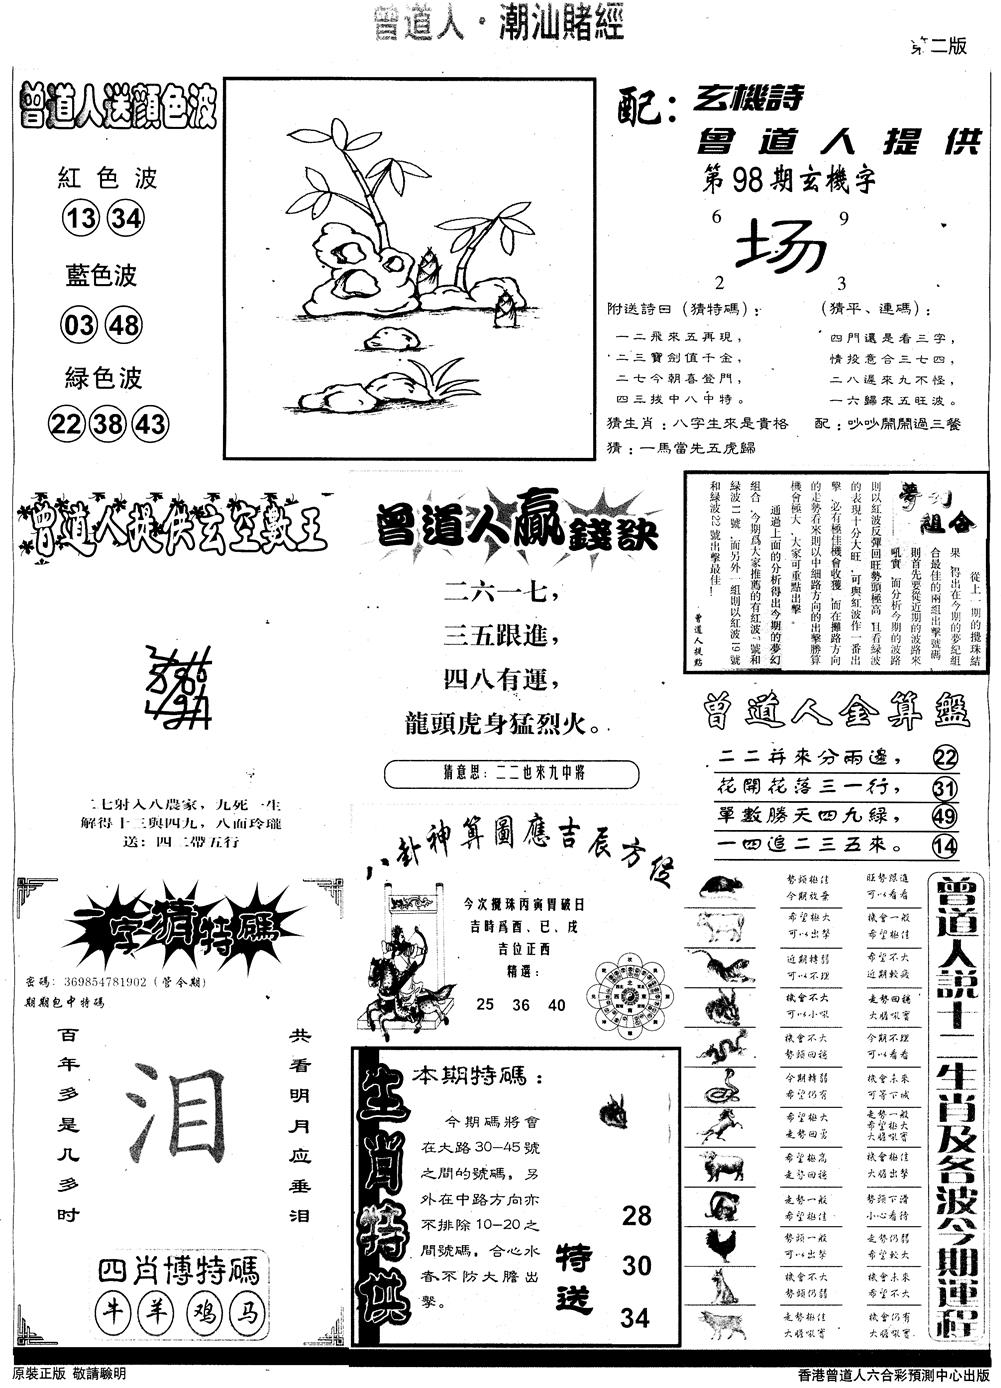 曾道人·潮汕賭經
第二版
曾道人送顔色波
紅色波
13 34
藍色波
03 48
緑色波
22 38 43
配：玄機詩
曾道人提供
第98期玄機字
6 9
场
2 3
附送詩曰（猜特碼）：
一二飛來五再現，
二三寶劍值千金，
二七今朝喜登門，
四三拔中八中特。
（猜平、連碼）：
四門還是看三字，
情投意合三七四，
二八遲來九不怪，
一六歸來五旺波。
猜生肖：八字生來是貴格
配：吵吵鬧鬧過三餐
猜：一馬當先五虎歸
曾道人提供玄空數王
二七射入八農家，九死一生
解得十三與四九，八面玲瓏
送：四二帶五行
曾道人贏錢訣
二六一七，
三五跟進，
四八有運，
龍頭虎身猛烈火。
猜意思：二二也來九中將
夢幻組合
從上一期的攪珠結
果，得出在今期的夢幻組
合最佳的兩組出擊號碼
則首先要從近期的波路來
吼實，而分析今期的波路
則以紅波反彈回旺勢頭極高，且看綠波
的表現十分大旺，可與紅波作一番出
擊，必有極佳機會收獲，而在攤路方向
的走勢看來則以中細路方向的出擊勝算
機會極大，大家可重點出擊。
通過上面的分析得出今期的夢幻
組合，今期爲大家推薦的有紅波7號和
綠波11號，而另外一組則以紅波19號
和綠波22號出擊最佳！
曾道人提點
曾道人金算盤
二二并來分兩邊， 22
花開花落三一行， 31
單數勝天四九緑， 49
一四追二三五來。 14
一字猜特碼
密碼：369854781902（管今期）
期期包中特碼
百年多是几多时
泪
共看明月应垂泪
四肖博特碼
牛 羊 鸡 马
八卦神算圖應吉辰方位
今次攪珠丙寅胃破日
吉時爲酉、巳、戌
吉位正西
精選：
25 36 40
生肖特供
本期特碼：
今期碼將會
在大路30—45號
之間的號碼，另
外在中路方向亦
不排除10—20之
間號碼，合心水
者不防大膽出
擊。
特送
28
30
34
曾道人説十二生肖及各波今期運程
勢頭極佳 旺勢跟進
今期放棄 可以看看
希望極大 機會一般
可以出擊 希望極佳
近期轉弱 希望不大
可以不理 近期較疲
機會不大 走勢回穩
可以小吼 大膽吼實
機會不大 今期不理
勢頭回穩 可以看看
今期轉弱 機會未來
希望仍有 可等下城
希望極大 走勢一般
走勢回勇 希望極大
大膽吼實
希望極高 機會極佳
走勢回穩 大膽出擊
走勢一般 勢頭下滑
希望極佳 小心看待
勢頭一般 走勢仍弱
可以出擊 希望較大
機會不大 機會未來
勢頭仍弱 希望不大
走勢一般 機會仍有
大膽吼實 大膽吼實
原裝正版 敬請驗明
香港曾道人六合彩預測中心出版